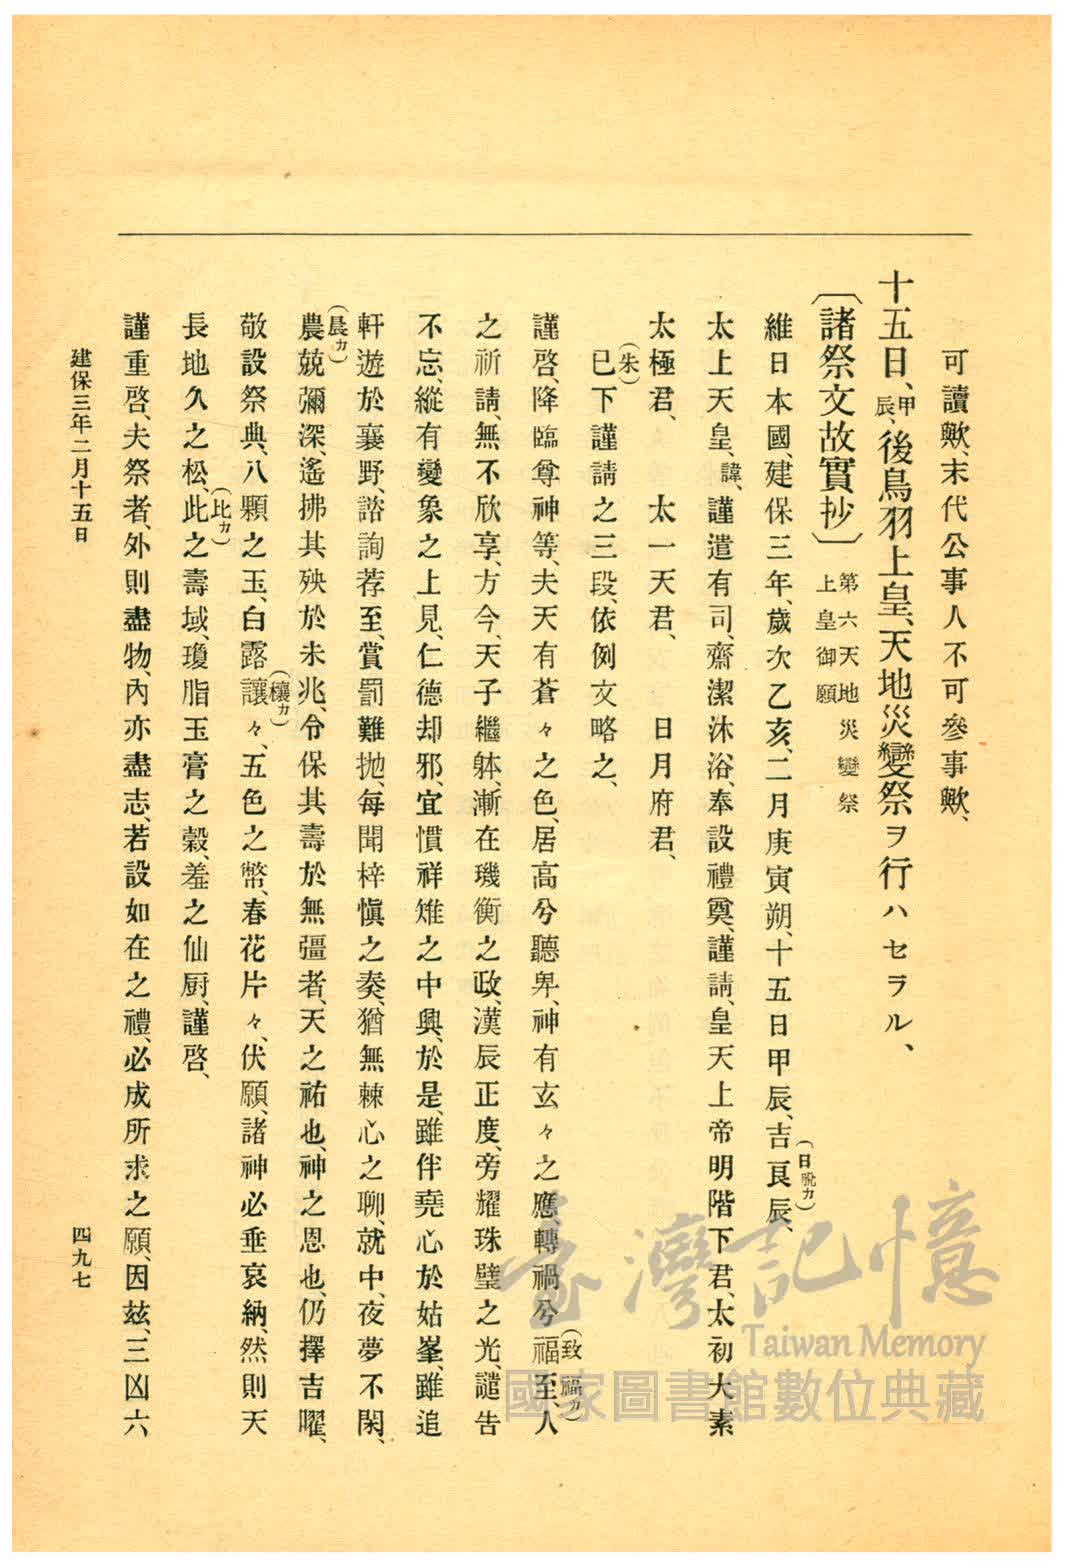 可讀歟、末代公事人不可參事歟、
十五日、甲辰、後鳥羽上皇、天地災變祭ヲ行ハセラル、
〔諸祭文故實抄〕第六天地災變祭上皇御願
維日本國、建保三年、歲次乙亥、二月庚寅朔、十五日甲辰、吉(日脫カ)良辰、
太上天皇、諱、謹遣有司、齋潔沐浴、奉設禮奠、謹請、皇天上帝明階下君、太初大素
太極君、　太一天君、　日月府君、
(朱)已下謹請之三段、依例文略之、
謹啓、降臨尊神等、夫天有蒼々之色、居高兮聽卑、神有玄々之應、轉禍兮福至、(致福カ)人
之祈請、無不欣享、方今、天子繼躰、漸在璣衡之政、漢辰正度、旁耀珠璧之光、譴告
不忘、縱有變象之上見、仁德却邪、宜慣祥雉之中興、於是、雖伴堯心於姑峯、雖追
軒遊於襄野、諮詢荐至、賞罰難拋、每聞梓愼之奏、猶無棘心之聊、就中、夜夢不閑、
農(晨カ)兢彌深、遙拂其殃於未兆、令保其壽於無彊者、天之祐也、神之恩也、仍擇吉曜、
敬設祭典、八顆之玉、白露讓(穰カ)々、五色之幣、春花片々、伏願、諸神必垂哀納、然則天
長地久之松、此(比カ)之壽域、瓊脂玉膏之穀、羞之仙厨、謹啓、
謹重啓、夫祭者、外則盡物、內亦盡志、若設如在之禮、必成所求之願、因玆、三凶六
建保三年二月十五日
四九七
臺灣記憶
Taiwan Memory
國家圖書館數位典藏